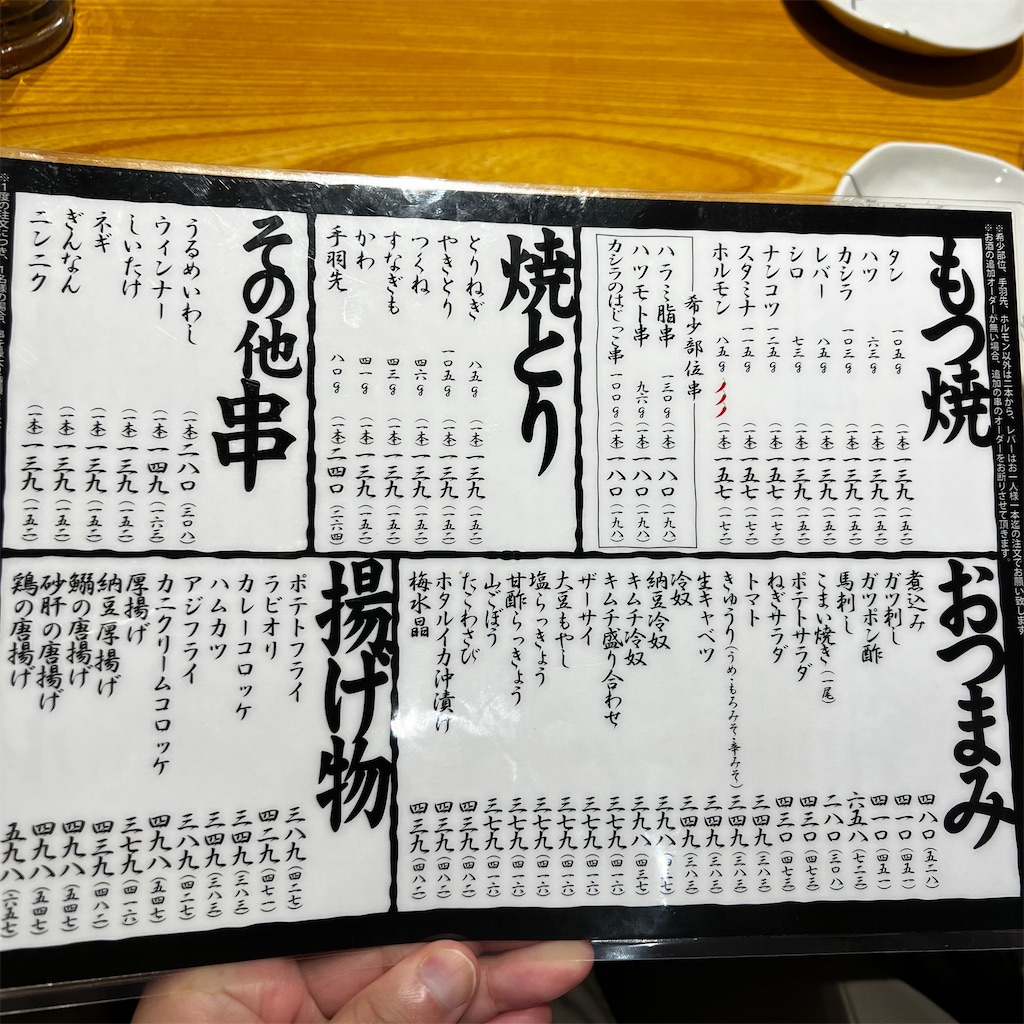 ※希少部位、手羽先、ホルモン以外は二本から、レバーはお一人様一本迄の注文でお願い致します。
※お酒の追加オーダーが無い場合、追加の串のオーダーをお断りさせて頂きます。
もつ焼
タン 一〇五g (一本)一三九(一五二)
ハツ 六三g (一本)一三九(一五二)
カシラ 一〇三g (一本)一三九(一五二)
レバー 八五g (一本)一三九(一五二)
シロ 七三g (一本)一三九(一五二)
ナンコツ 一二五g (一本)一五七(一七二)
スタミナ 一一五g (一本)一五七(一七二)
ホルモン 八五g (一本)一五七(一七二)
希少部位串
ハラミ脂串 一三〇g (一本)一八〇(一九八)
ハツモト串 九六g (一本)一八〇(一九八)
カシラのはじっこ串 一〇〇g (一本)一八〇(一九八)
焼とり
とりねぎ 八五g (一本)一三九(一五二)
やきとり 一〇五g (一本)一三九(一五二)
つくね 四六g (一本)一三九(一五二)
すなぎも 四三g (一本)一三九(一五二)
かわ 四一g (一本)一三九(一五二)
手羽先 八〇g (一本)二四〇(二六四)
その他串
うるめいわし (一本)二八〇(三〇八)
ウィンナー (一本)一四九(一六三)
しいたけ (一本)一三九(一五二)
ネギ (一本)一三九(一五二)
ぎんなん (一本)一三九(一五二)
ニンニク (一本)一三九(一五二)
※1度の注文につき、1名様の場合、串
おつまみ
煮込み 四八〇(五二八)
ガツ刺し 四一〇(四五一)
ガツポン酢 四一〇(四五一)
馬刺し 六五八(七二三)
こまい焼き(一尾) 二八〇(三〇八)
ポテトサラダ 四三〇(四七三)
ねぎサラダ 四三〇(四七三)
トマト 三四九(三八三)
きゅうり(うめ・もろみそ・辛みそ) 三四九(三八三)
生キャベツ 三四九(三八三)
冷奴 三四九(三八三)
納豆冷奴 三七九(四一六)
キムチ冷奴 三九八(四三七)
キムチ盛り合わせ 三七九(四一六)
ザーサイ 三七九(四一六)
大豆もやし 三七九(四一六)
塩らっきょう 三七九(四一六)
甘酢らっきょう 三七九(四一六)
山ごぼう 三七九(四一六)
たこわさび 四三九(四八二)
ホタルイカ沖漬け 四三九(四八二)
梅水晶 四三九(四八二)
揚げ物
ポテトフライ 三八九(四二七)
ラビオリ 四二九(四七一)
カレーコロッケ 三四九(三八三)
ハムカツ 三四九(三八三)
アジフライ 三八九(四二七)
カニクリームコロッケ 四九八(五四七)
厚揚げ 三七九(四一六)
納豆厚揚げ 四三九(四八二)
鰯の唐揚げ 四九八(五四七)
砂肝の唐揚げ 四九八(五四七)
鶏の唐揚げ 五九八(六五七)